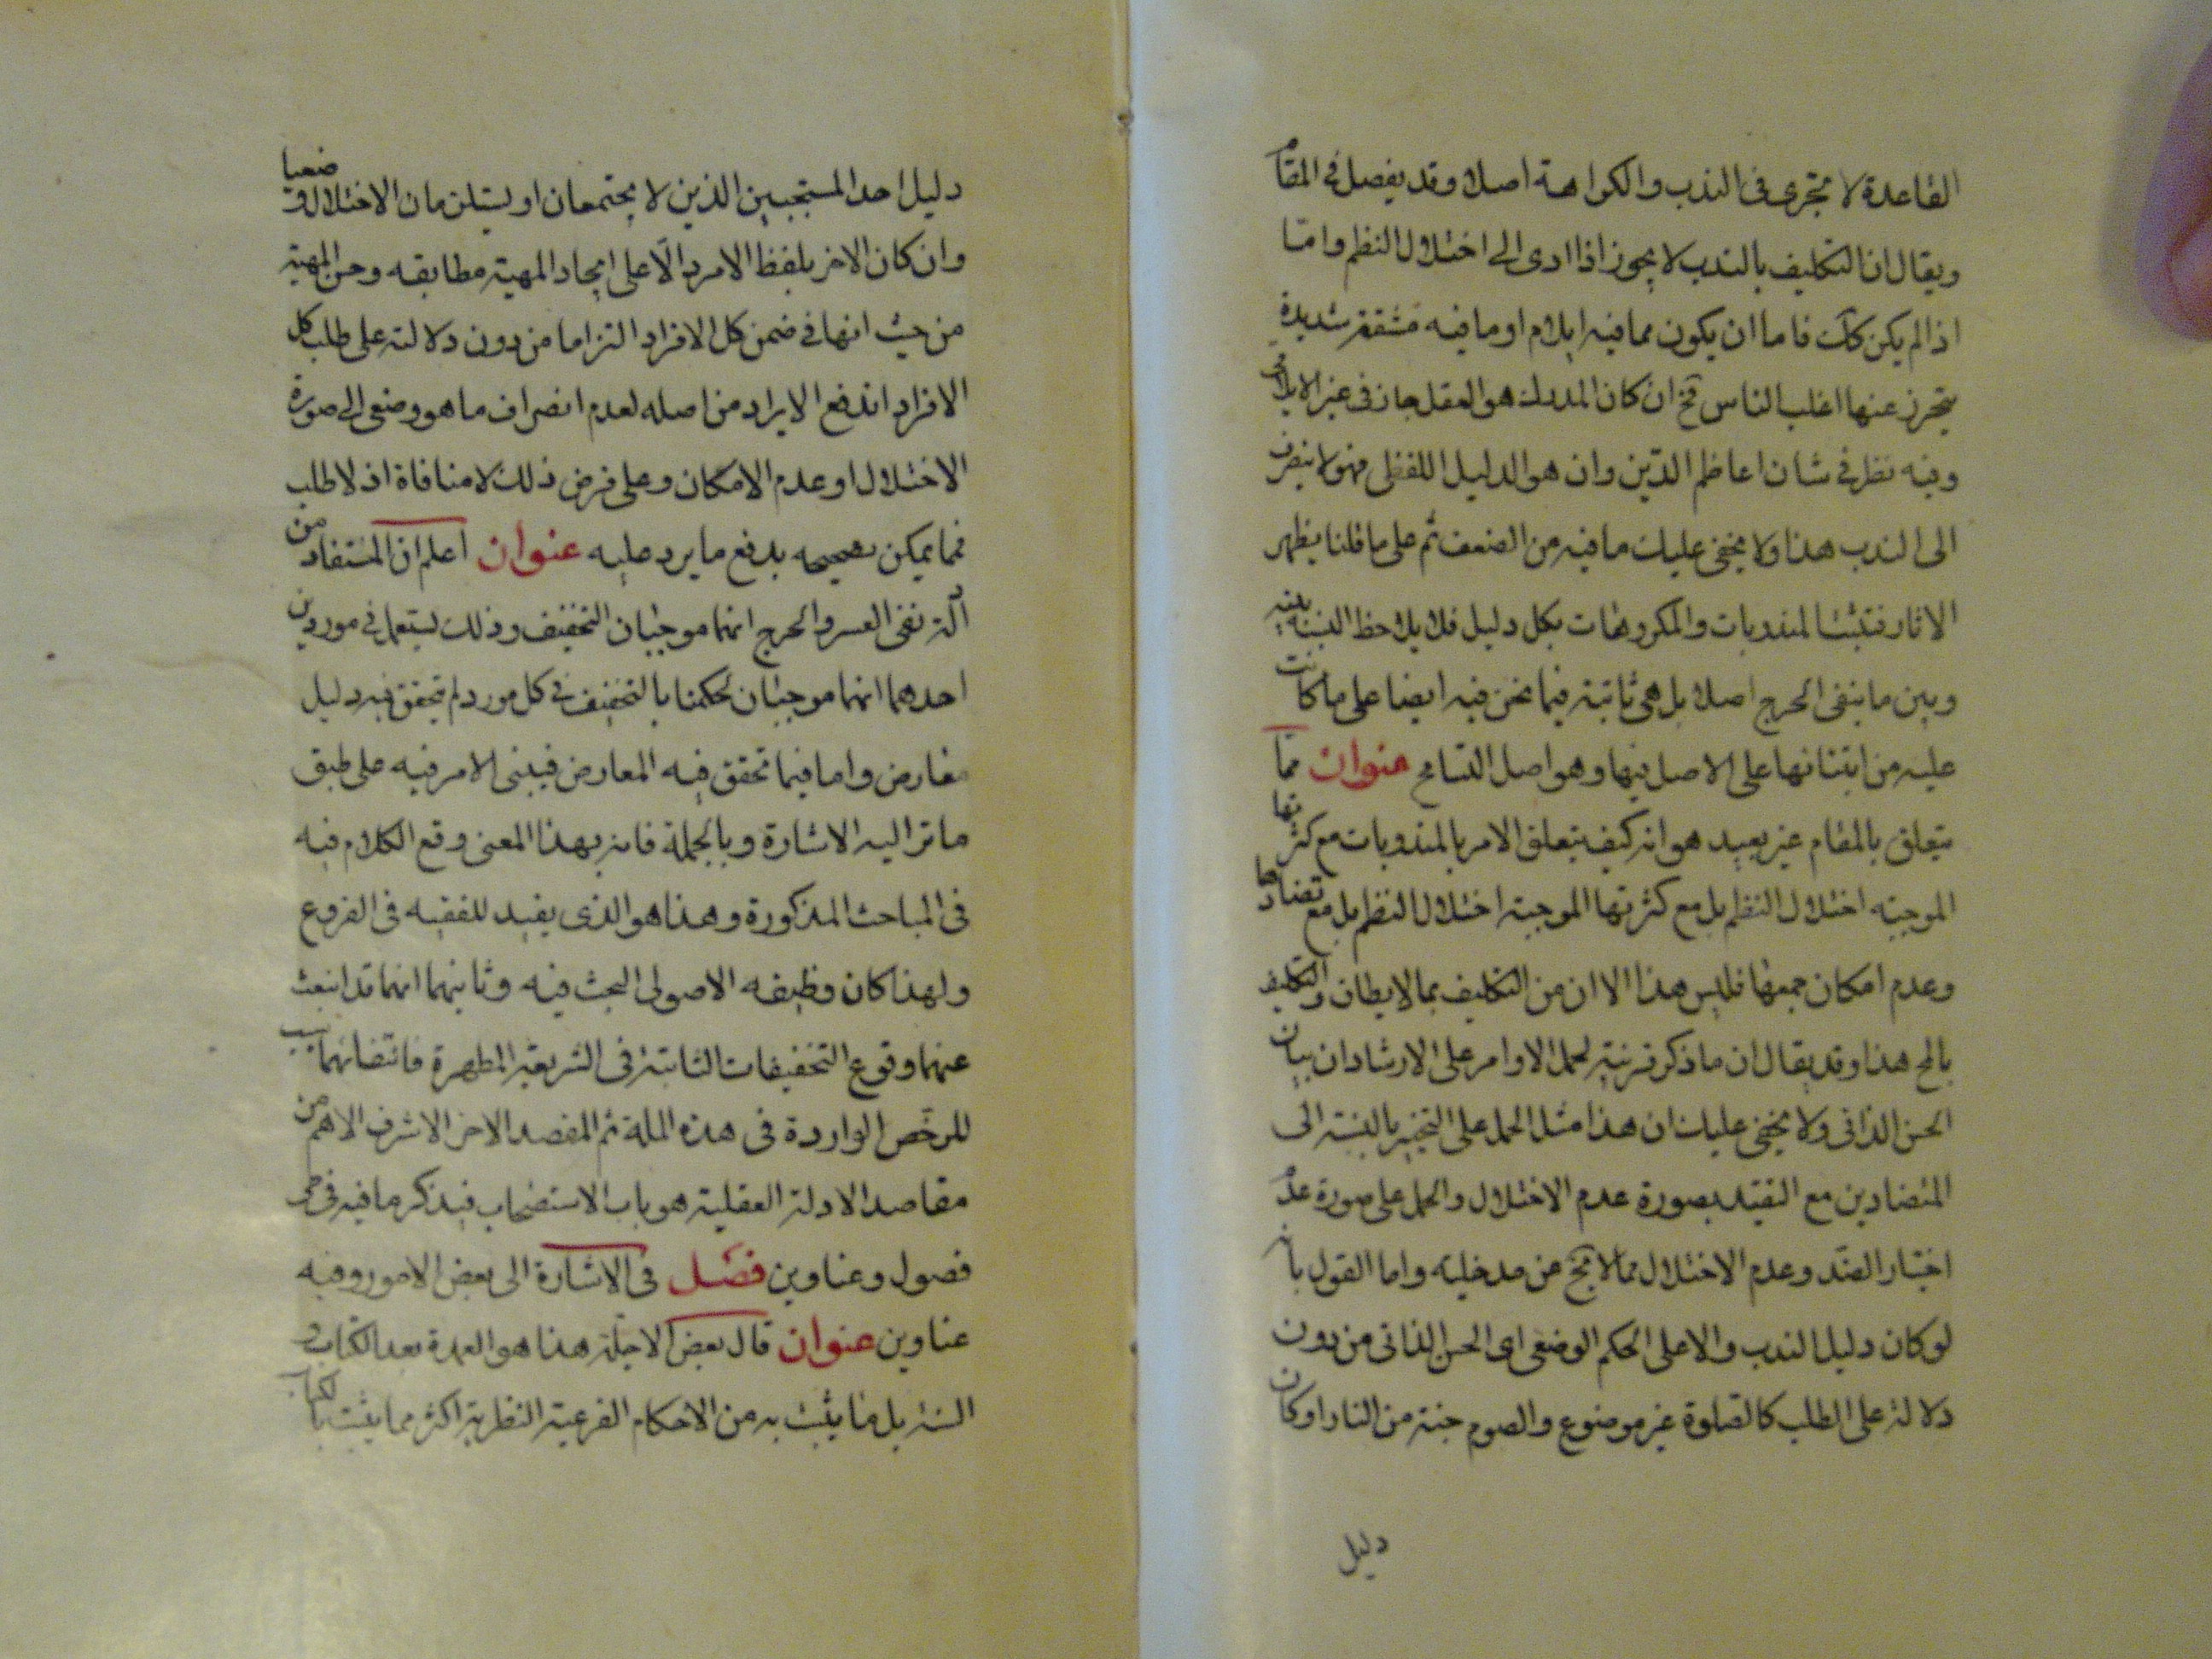 القاعدة لا تجرى فى الندب والكراهة اصلا وقد يفصل فى المقام
ويقال ان التكليف بالندب لا يجوز اذا ادى الى اختلال النظم واما
اذا لم يكن كك فاما ان يكون مما فيه ايلام او ما فيه مشقة شديدة
يتحرز عنها اغلب الناس فح ان كان المدرك هو العقل جاز فى غير الايلام
وفيه نظر فى شان اعاظم الدين وان هو الدليل اللفظى فهو لا ينصرف
الى الندب هذا ولا يخفى عليك ما فيه من الضعف ثم على ما قلنا يظهر
الاثار فتثبت المندوبات والمكروهات بكل دليل فلا يلاحظ النسبة بينه
وبين ما ينفى الحرج اصلا بل هى ثابتة فيما نحن فيه ايضا على ما كانت
عليه من ابتنائها على الاصل فيها وهو اصل التسامح عنوان مما
يتعلق بالمقام غير بعيد هو انه كيف يتعلق الامر بالمندوبات مع كثرتها
الموجبة اختلال النظم بل مع كثرتها الموجبة اختلال النظم بل مع تضادها
وعدم امكان جمعها فليس هذا الا ان من التكليف بما لا يطاق والتكليف
بالمح هذا وقد يقال ان ما ذكر قرينة لحمل الاوامر على الارشاد ان بيان
الحسن الذاتى ولا يخفى عليك ان هذا مثل الحمل على التخيير بالنسبة الى
المتضادين مع التقييد بصورة عدم الاختلال والحمل على صورة عدم
اختيار الضد وعدم الاختلال مما لا يخ عن مدخلية واما القول بانه
لو كان دليل الندب والا على الحكم الوضعى اى الحسن الذاتى من دون
دلالة على الطلب كالصلوة خير موضوع والصوم جنة من النار او كان
دليل
دليل احد المستحبين الذين لا يجتمعان او يستلزمان الاختلال وضعيا
وان كان الاخر بلفظ الامر دالا على ايجاد المهية مطابقه وحسن المهية
من حيث انها فى ضمن كل الافراد التزاما من دون دلالته على طلب كل
الافراد اندفع الايراد من اصله لعدم انصراف ما هو وضعى الى صورة
الاختلال او عدم الامكان وعلى فرض ذلك لا منافاة اذ لا طلب
فما يمكن تصحيحه بدفع ما يرد عليه عنوان اعلم ان المستفاد من
ادلة نفى العسر والحرج انهما موجبان التخفيف وذلك يستعمل فى موردين
احدهما انهما موجبان لحكمنا بالتخفيف فى كل مورد لم يتحقق فيه دليل
معارض واما فيما تحقق فيه المعارض فيبنى الامر فيه على طبق
ما مر اليه الاشارة وبالجملة فانه بهذا المعنى وقع الكلام فيه
فى المباحث المذكورة وهذا هو الذى يفيد للفقيه فى الفروع
ولهذا كان وظيفه الاصولى البحث فيه وثانيهما انهما قد انبعث
عنهما وقوع التخفيفات الثابتة فى الشريعة المطهرة فاقتضائهما سبب
للرخص الواردة فى هذه الملة ثم المقصد الاخر الاشرف الاهم من
مقاصد الادلة العقلية هو باب الاستصحاب فيذكر ما فيه فى
فصول وعناوين فصل فى الاشارة الى بعض الامور وفيه
عناوين عنوان قال بعض الاجلة هذا هو العمدة بعد الكتاب و
السنة بل ما يثبت به من الاحكام الفرعية النظرية اكثر مما يثبت بالكتاب